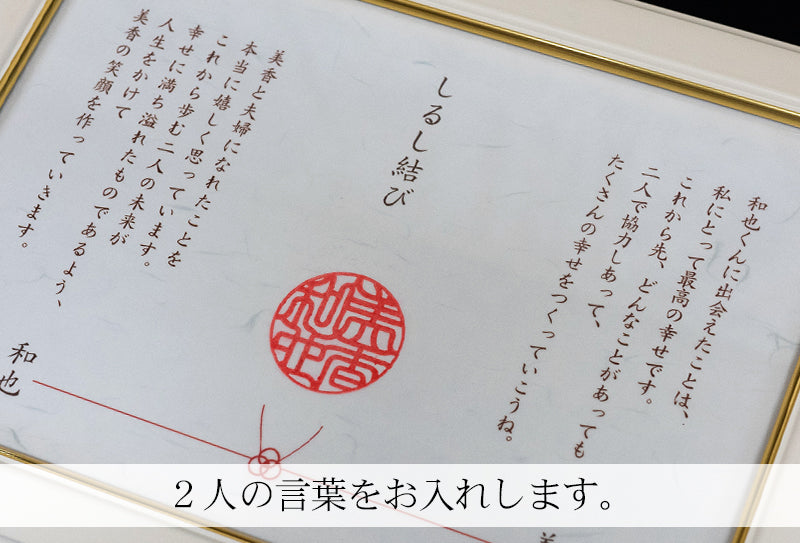 和也くんに出会えたことは、
私にとって最高の幸せです。
これから先、どんなことがあっても
二人で協力しあって、
たくさんの幸せをつくっていこうね。
しるし結び
美香と夫婦になれたことを
本当に嬉しく思っています。
これから歩む二人の未来が
幸せに満ち溢れたものであるよう、
人生をかけて
美香の笑顔を作っていきます。
美香
和也
和也
２人の言葉をお入れします。